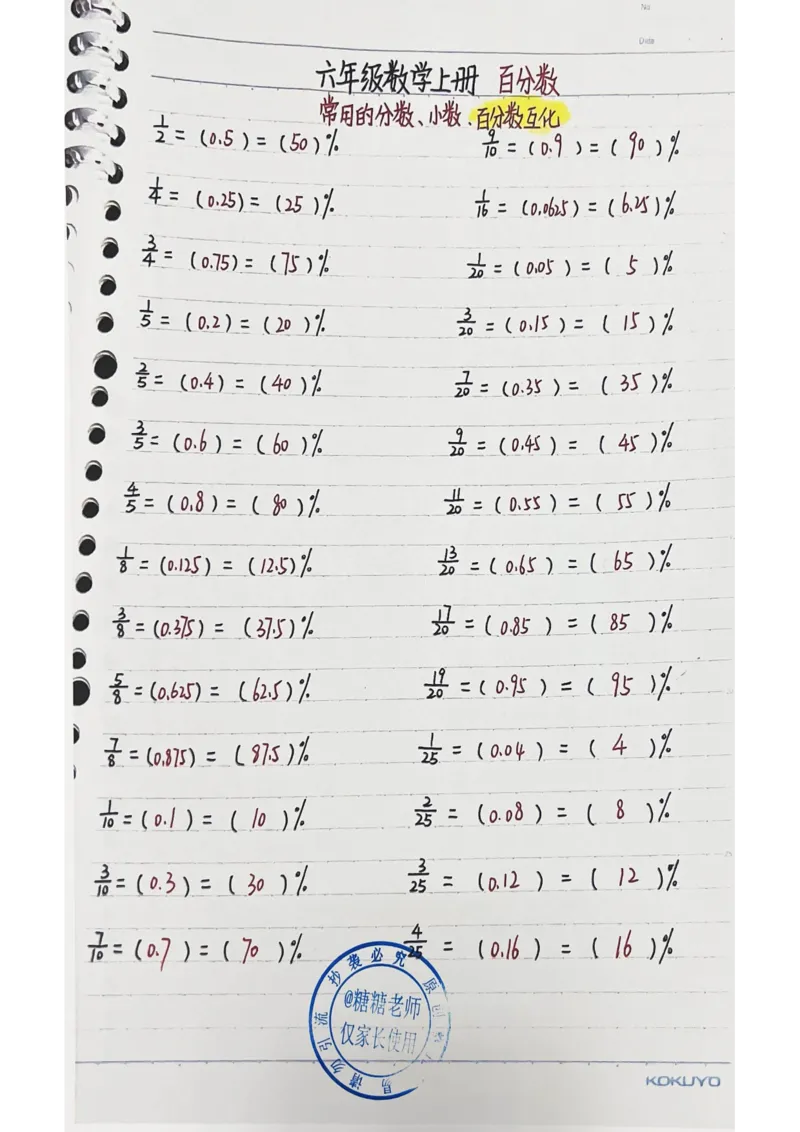 No.
Date
六年级数学上册 百分数
常用的分数、小数、百分数互化
1/2 = (0.5) = (50)%
1/4 = (0.25) = (25)%
3/4 = (0.75) = (75)%
1/5 = (0.2) = (20)%
2/5 = (0.4) = (40)%
3/5 = (0.6) = (60)%
4/5 = (0.8) = (80)%
1/8 = (0.125) = (12.5)%
3/8 = (0.375) = (37.5)%
5/8 = (0.625) = (62.5)%
7/8 = (0.875) = (87.5)%
1/10 = (0.1) = (10)%
3/10 = (0.3) = (30)%
7/10 = (0.7) = (70)%
9/10 = (0.9) = (90)%
1/16 = (0.0625) = (6.25)%
1/20 = (0.05) = (5)%
3/20 = (0.15) = (15)%
7/20 = (0.35) = (35)%
9/20 = (0.45) = (45)%
11/20 = (0.55) = (55)%
13/20 = (0.65) = (65)%
17/20 = (0.85) = (85)%
19/20 = (0.95) = (95)%
1/25 = (0.04) = (4)%
2/25 = (0.08) = (8)%
3/25 = (0.12) = (12)%
4/25 = (0.16) = (16)%
抄袭必究
@糖糖老师
仅家长使用
请勿引流
KOKUYO